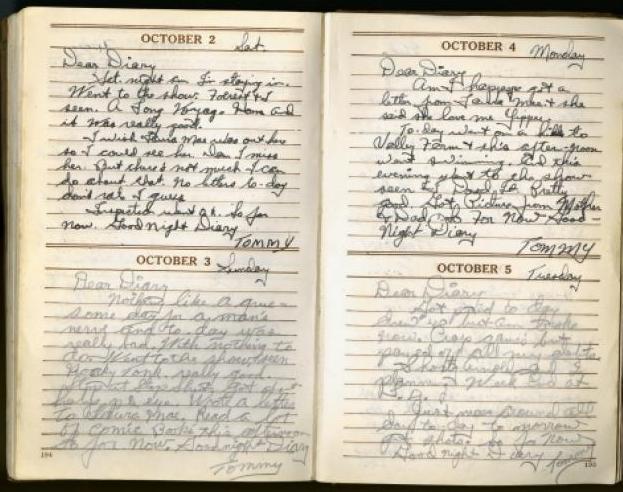 OCTOBER 2 Sat.
Dear Diary
Sat. night am I'm staying in.
Went to the show. Forest & I
seen. A Long Voyage Home and
it was really good.
I wish Laura Mae was out here
so I could see her. I miss
her. But there's not much I can
do about that. No letters to-day
don't rate I guess
Inspection went o.k. So for
now. Good night Diary
TOMMY
OCTOBER 3 Sunday
Dear Diary
Nothing like a
some day for a man's
nerves and to-day was
really bad. With nothing to
do. Went to the show seen
Honky Tonk, really good.
Wrote a letter
to Laura Mae. Read a lot
of comic Books this afternoon
so for Now. Goodnight Diary
Tommy
194
OCTOBER 4 Monday
Dear Diary
Am I happy got a
letter from Laura Mae & she
said she love me Yippee.
To-day went on a hike to
Valley Farm & this after-noon
went swimming. And this
evening went to the show
seen Pretty
good. Got Picture from Mother
& Dad, so For Now Good-
Night Diary
TOMMY
OCTOBER 5 Tuesday
Dear Diary
Got paid to-day
but am broke
now. Crap game but
payed off all my debts.
I
at
Just mess around all
day to-day to-morrow
so for now
Good night Diary Tommy
195